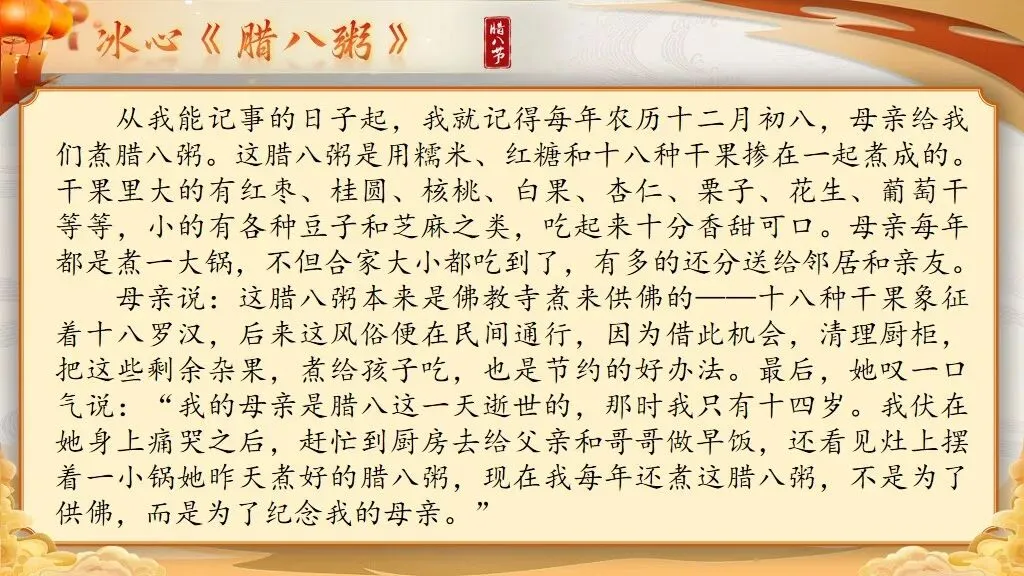 冰心《腊八粥》
腊八节
从我能记事的日子起，我就记得每年农历十二月初八，母亲给我
们煮腊八粥。这腊八粥是用糯米、红糖和十八种干果掺在一起煮成的。
干果里大的有红枣、桂圆、核桃、白果、杏仁、栗子、花生、葡萄干
等等，小的有各种豆子和芝麻之类，吃起来十分香甜可口。母亲每年
都是煮一大锅，不但合家大小都吃到了，有多的还分送给邻居和亲友。
母亲说：这腊八粥本来是佛教寺煮来供佛的——十八种干果象征
着十八罗汉，后来这风俗便在民间通行，因为借此机会，清理厨柜，
把这些剩余杂果，煮给孩子吃，也是节约的好办法。最后，她叹一口
气说：“我的母亲是腊八这一天逝世的，那时我只有十四岁。我伏在
她身上痛哭之后，赶忙到厨房去给父亲和哥哥做早饭，还看见灶上摆
着一小锅她昨天煮好的腊八粥，现在我每年还煮这腊八粥，不是为了
供佛，而是为了纪念我的母亲。”